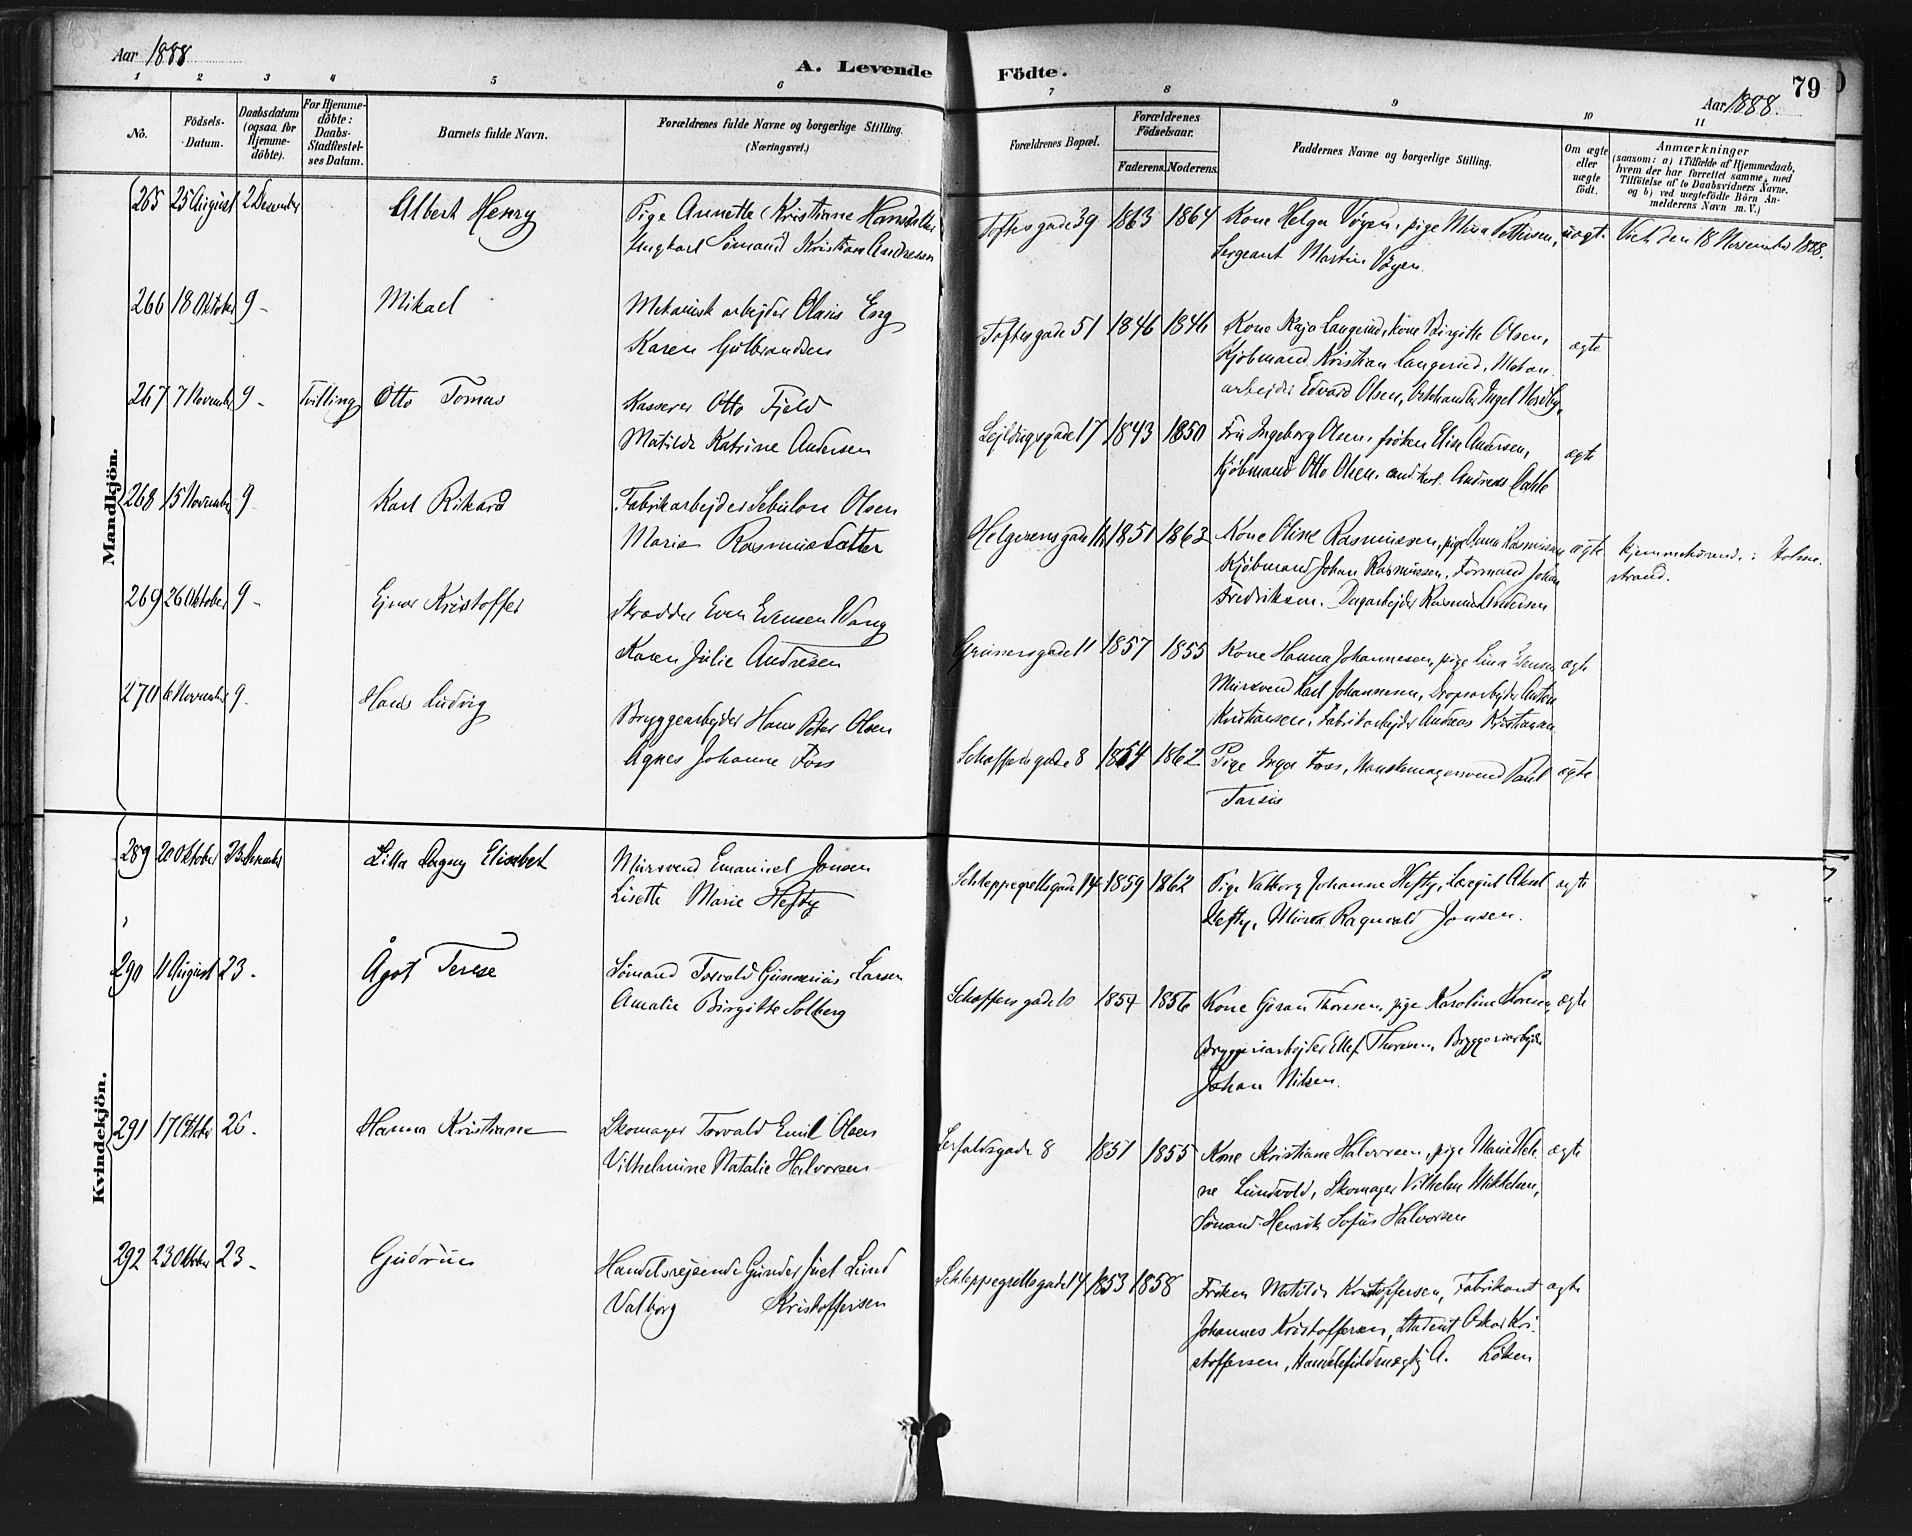 Aar 1888
A. Levende Födte.
79
Aar 1888.
1 2 3 4 5 6 7 8 9 10 11
No.
Födsels-Datum.
Daabsdatum (ogsaa for Hjemmedöbte).
For Hjemmedöbte: Daabs-Stadfæstelses Datum.
Barnets fulde Navn.
Forældrenes fulde Navne og borgerlige Stilling.
(Næringsvei.)
Forældrenes Bopæl.
Forældrenes Födselsaar.
Faderens. Moderens.
Faddernes Navne og borgerlige Stilling.
Om ægte eller uægte födt.
Anmærkninger
(saasom: a) i Tilfælde af Hjemmedaab, hvem der har forrettet samme, med Tilföielse af to Daabsvidners Navne, og b) ved uægtefödte Börn Anmelderens Navn m. V.)
Mandkjön.
265 25 August 2 Desember Albert Henry
Pige Annette Kristiane Hansdatter
Ungkarl Sömand Kristian Andresen
Toftesgade 39 1863 1864
Kone Helga Vöyen, pige Mina Pettersen,
Sergeant Martin Vöyen
uægt. Vidt. den 18 November 1888.
266 18 Oktober 9- Mikael
Mekanisk arbejder Olaus Eng
Karen Gulbrandsen
Toftesgade 51 1846 1846
Kone Kaja Langerud, kone Birgitte Olsen,
Kjöbmand Kristian Langerud, Mekan.
arbejder Edvard Olsen, Ingel Nordby.
ægte
267 7 November 9- Tvilling Otto Tomas
Kasserer Otto Fjeld
Matilde Katrine Andersen
17 1843 1850
Fru Ingeborg Olsen, fröken Elise Andersen,
Kjöbmand Otto Olsen, Andreas Dahle
ægte
268 15 November 9 Karl Rikard
Fabrikarbejder Sebulon Olsen
Marie Rasmusdatter
Helgesensgade 1851 1862
Kone Oline Rasmussen, pige Anna Rasmussen
Kjöbmand Johan Rasmussen, Formand Johan
Fredriksen, Dagarbejder Rasmus Andersen
ægte hjemmehörende i Holme-
strand.
269 26 Oktober 9- Ejnar Kristoffer
Skrædder Even Evensen Wang
Karen Julie Andresen
Grünersgade 11 1857 1855
Kone Hanna Johannesen, pige Lina Evensen
Mursvend Karl Johannesen, Dropsarbejder Anton
Kristiansen, Fabrikarbejder Andreas Kristiansen
ægte
270 6 November 9- Hans Ludvig
Bryggearbejder Hans Peter Olsen
Agnes Johanne Foss
Schaffersgade 8 1854 1862
Pige Inga Foss, Hanskemagersvend Paul
Tarsis
ægte
Kvindekjön.
289 20 Oktober 23 Desember Lilla Dagny Elisabet
Mursvend Emanuel Jonsen
Lisette Marie Hefty
Schleppegrellsgade 14 1859 1862
Pige Valborg Johanne Hefty, Lægut Aksel
Hefty, Murer Ragnvald Jonsen.
ægte
290 11 August 23- Ågot Terese
Sömand Torvald Gunerius Larsen
Amalie Birgitte Solberg
Schaffersgade 10 1854 1856
Kone Göran Thoresen, pige Karoline Thoresen,
Bryggeriarbejder Ellef Thoresen, Bryggeriarbejder
Johan Nilsen.
ægte
291 17 Oktober 26- Hanna Kristiane
Skomager Torvald Emil Olsen
Vilhelmine Natalie Halvorsen
Lerfaldsgade 8 1851 1855
Kone Kristiane Halvorsen, pige Marie Hele-
ne Lundvold, Skomager Vilhelm Mikkelsen,
Sömand Henrik Sofus Halvorsen
ægte
292 23 Oktober 23- Gudrun
Handelsrejsende Gunder Juel Lund
Valborg Kristoffersen
Schleppegrellsgade 14 1853 1858
Fröken Matilde Kristoffersen, Fabrikant
Johannes Kristoffersen, Student Oskar Kri-
stoffersen, Handelsfuldmægtig A. Löken
ægte